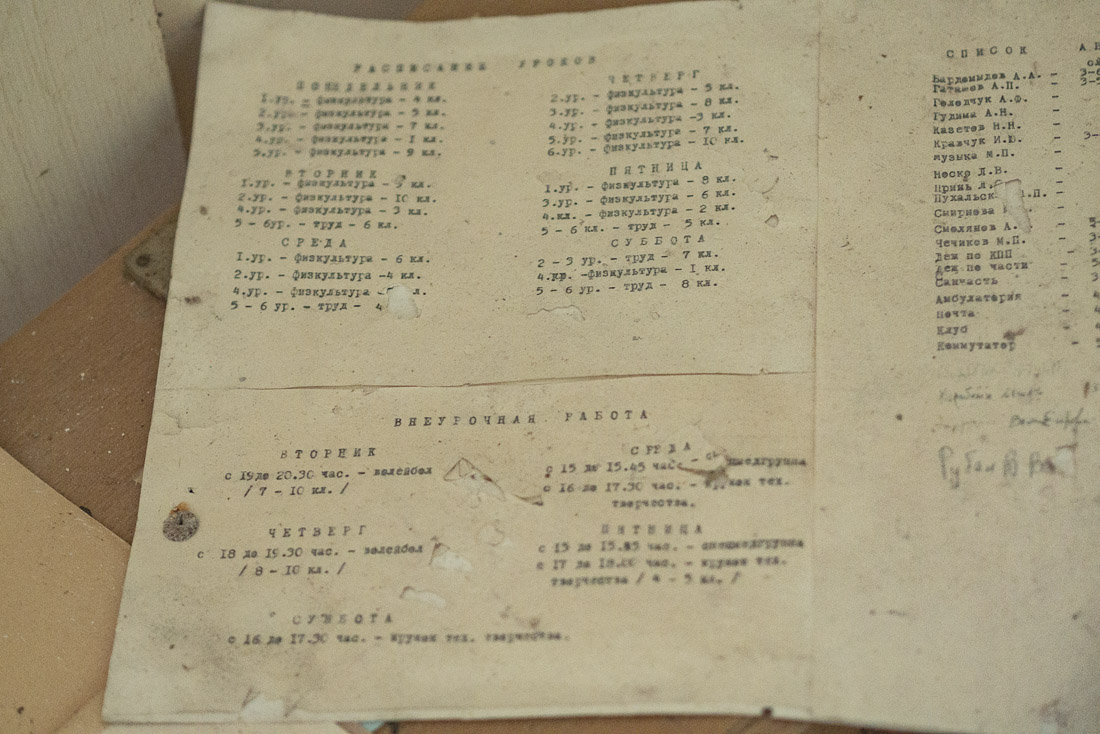 РАСПИСАНИЕ УРОКОВ
ПОНЕДЕЛЬНИК
1.ур. - физкультура - 4 кл.
2.ур. - физкультура - 5 кл.
3.ур. - физкультура - 7 кл.
4.ур. - физкультура - 1 кл.
5.ур. - физкультура - 9 кл.
ВТОРНИК
1.ур. - физкультура - 9 кл.
2.ур. - физкультура - 10 кл.
4.ур. - физкультура - 3 кл.
5 - 6ур. - труд - 6 кл.
СРЕДА
1.ур. - физкультура - 6 кл.
2.ур. - физкультура -4 кл.
4.ур. - физкультура - л.
5 - 6 ур. - труд - 4
ЧЕТВЕРГ
2.ур. - физкультура - 5 кл.
3.ур. - физкультура - 8 кл.
4.ур. - физкультура -3 кл.
5.ур. - физкультура - 7 кл.
6.ур. - физкультура - 10 кл.
ПЯТНИЦА
1.ур. - физкультура - 8 кл.
3.ур. - физкультура - 6 кл.
4.кл. - физкультура - 2 кл.
5 - 6 кл. - труд - 5 кл.
СУББОТА
2 - 3 ур. - труд - 7 кл.
4.ур. -физкультура - 1 кл.
5 - 6 ур. - труд - 8 кл.
ВНЕУРОЧНАЯ РАБОТА
ВТОРНИК
с 19до 20.30 час. - волейбол
/ 7 - 10 кл. /
ЧЕТВЕРГ
с 18 до 19.30 час. - волейбол
/ 8 - 10 кл. /
СУББОТА
с 16 до 17.30 час. - кружок тех. творчества.
СРЕДА
с 15 до 15.45 час. - спецмедгруппа
с 16 до 17.30 час. - кружок тех.
творчества.
ПЯТНИЦА
с 15 до 15.85 час. - спецмедгруппа
с 17 до 18.00 час. - кружок тех.
творчества / 4 - 5 кл. /
СПИСОК
Бардомидов А.А. -
Гатамов А.П. -
Гололчук А.Ф. -
Гудима А.Н. -
Казетов Н.Н. -
Кравчук И.Ю. -
музыка М.П. -
Носко Л.В. -
Принь
Пухальск .П. -
Смирнова -
Смолянов А. -
Чечиков М.П. -
Деж по КПП -
Деж по части -
Санчасть -
Амбулатория -
Почта -
Клуб -
Коммутатор -